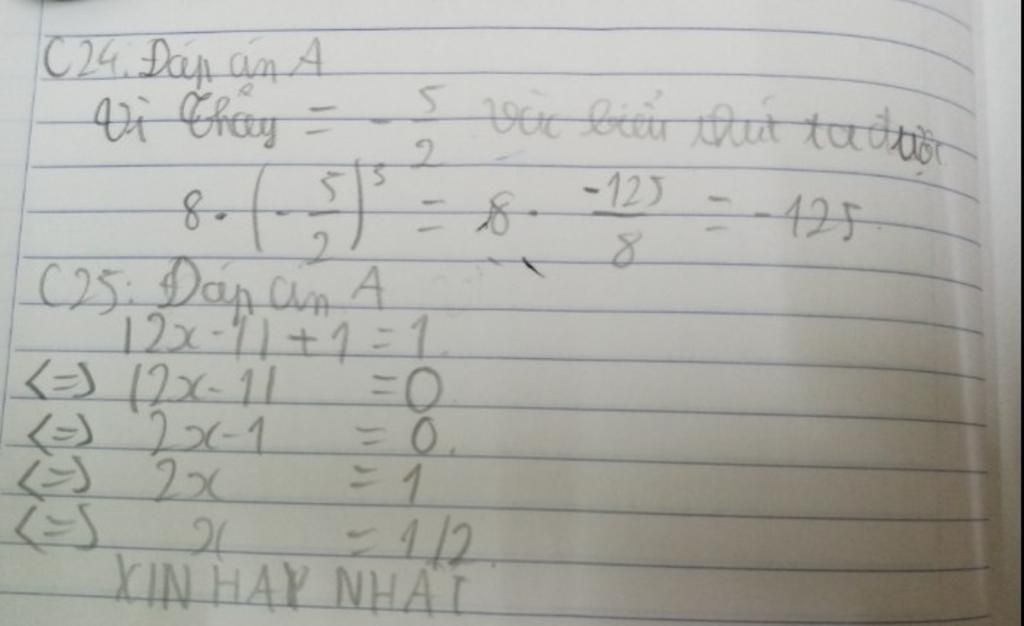 C24: Đáp án A
Vì thay = - 5/2 vào biểu thức ta được
8 . (- 5/2)³ = 8 . -125/8 = -125
C25: Đáp án A
|2x-1|+1=1
<=> |2x-1| =0
<=> 2x-1 =0.
<=> 2x =1
<=> x =1/2
XIN HAY NHẤT